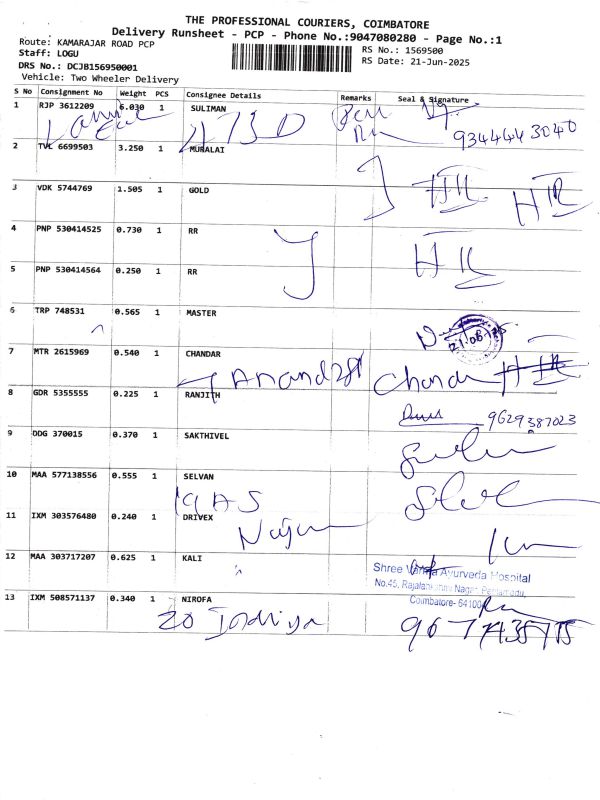 THE PROFESSIONAL COURIERS, COIMBATORE
Delivery Runsheet - PCP - Phone No.:9047080280 - Page No.:1
Route: KAMARAJAR ROAD PCP
Staff: LOGU
RS No.: 1569500
DRS No.: DCJB156950001
RS Date: 21-Jun-2025
Vehicle: Two Wheeler Delivery
S No Consignment No Weight PCS Consignee Details Remarks Seal & Signature
1 RJP 3612209 6.030 1 SULIMAN
9344443040
2 TVL 6699503 3.250 1 MURALAI
3 VDK 5744769 1.505 1 GOLD
4 PNP 530414525 0.730 1 RR
5 PNP 530414564 0.250 1 RR
6 TRP 748531 0.565 1 MASTER
7 MTR 2615969 0.540 1 CHANDAR
Anand
8 GDR 5355555 0.225 1 RANJITH
9629387023
9 DDG 370015 0.370 1 SAKTHIVEL
10 MAA 577138556 0.555 1 SELVAN
11 IXM 303576480 0.240 1 DRIVEX
12 MAA 303717207 0.625 1 KALI
Shree Ayurveda Hospital
No.45, Nagar,
Coimbatore-
13 IXM 508571137 0.340 1 NIROFA